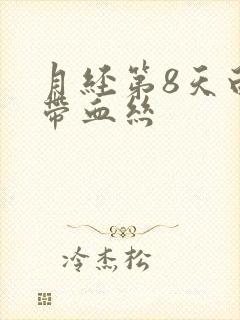 月経第8天
帶血絲
冷杰松